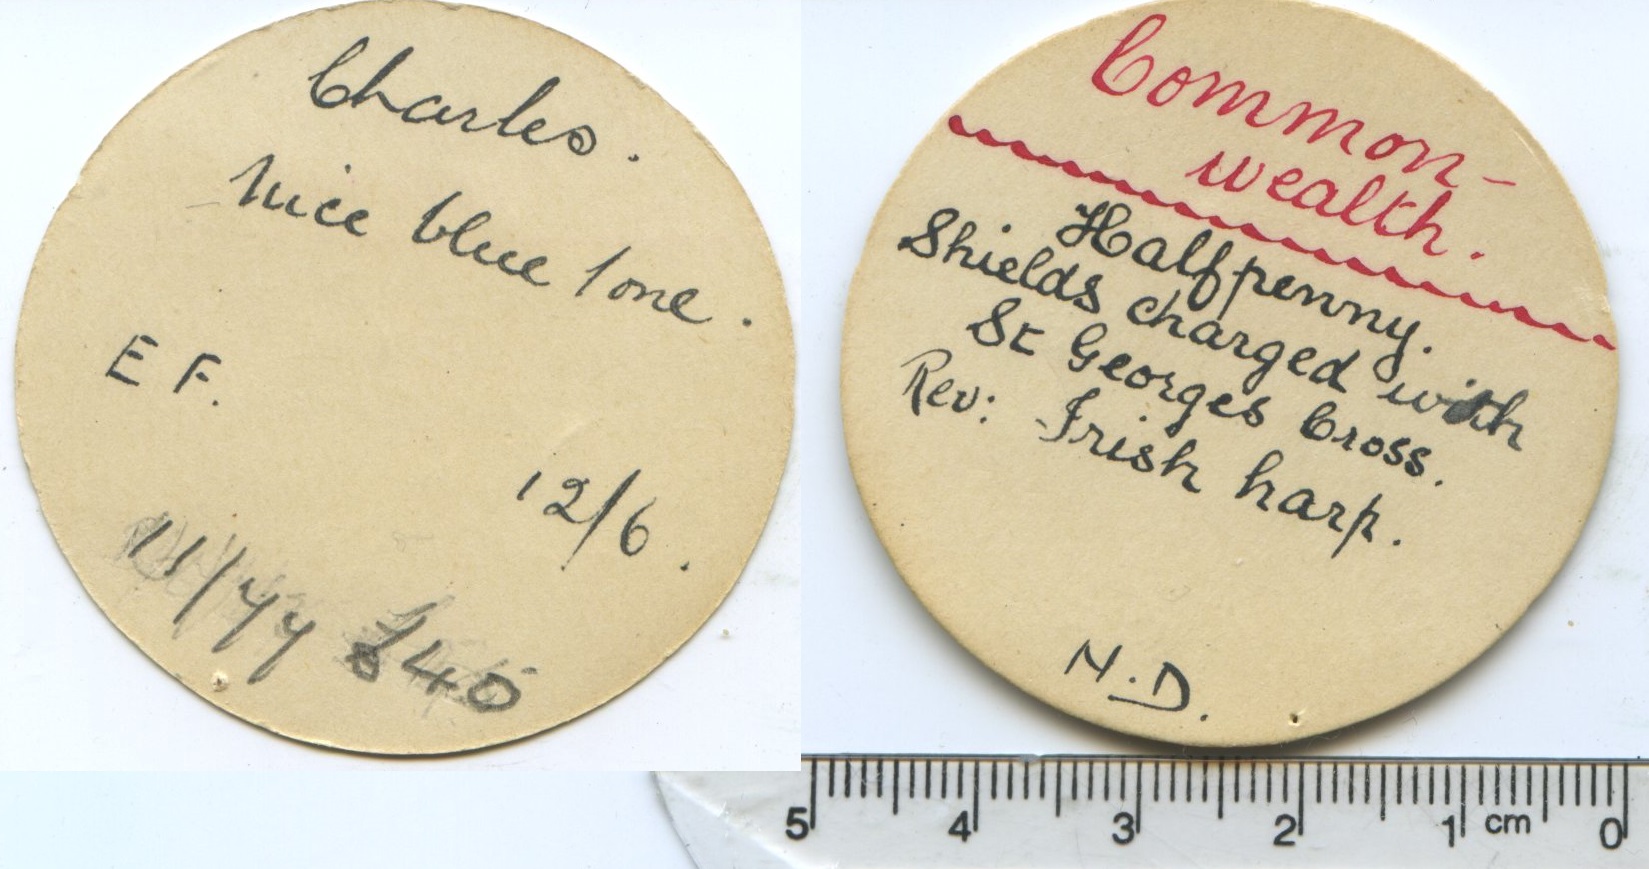 Charles.
Nice blue tone.
E F.
12/6.
11/77 £40
Common-
wealth.
Halfpenny.
Shields charged with
St Georges Cross.
Rev: Irish harp.
N.D.
5 4 3 2 1 cm 0